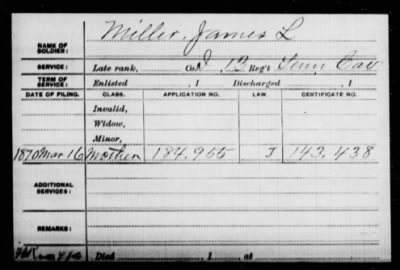 Miller, James L
NAME OF SOLDIER:
SERVICE: Late rank, Co. 12 Reg't Tenn Cav
TERM OF SERVICE: Enlisted , 1 Discharged , 1
DATE OF FILING. CLASS. APPLICATION NO. LAW. CERTIFICATE NO.
Invalid,
Widow,
Minor,
1870 Mar 16 Mother 184.955 J 143.438
ADDITIONAL SERVICES:
REMARKS:
Died , 1 , at